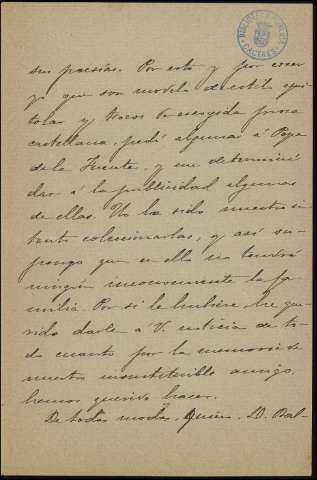 BIBLIOTECA
CACERES
sus poesías. Por esto y por creer
yo que son modelo de estilo epis
tolar y trozos de escogida prosa
castellana, pedí algunas á Pepe
de la Fuente, y me determiné
dar á la publicidad algunas
de ellas. No ha sido nuestro in
tento coleccionarlas, y así su-
pongo que en ello no tendrá
ningún inconveniente la fa
milia. Por si le hubiere he que
rido darle á V. noticia de to
do cuanto por la memoria de
nuestro insustituible amigo,
hemos querido hacer.
De todos modos, D. Bal-